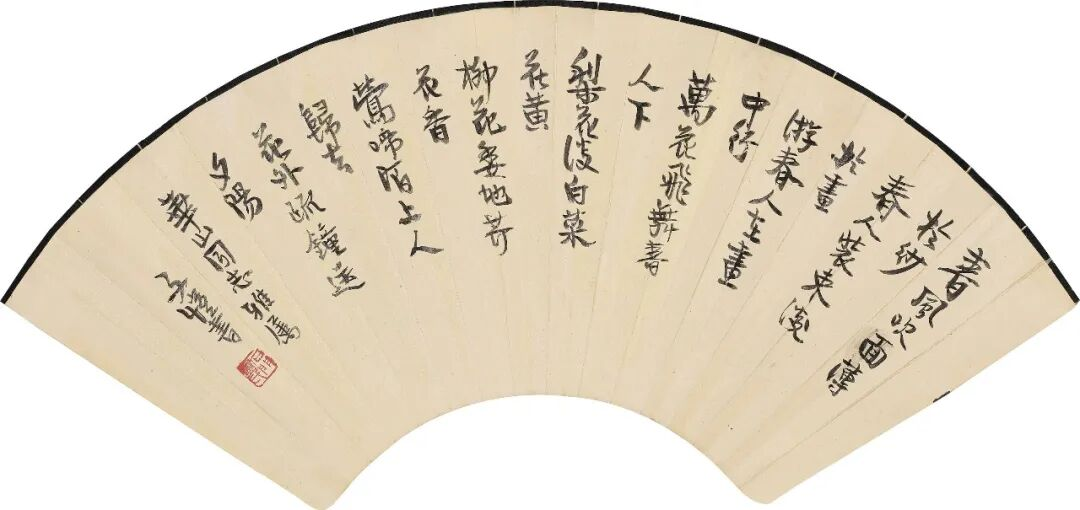 春風吹面薄
於紗
春人裝束淡
於畫
游春人在畫
中行
萬花飛舞春
人下
梨花淡白菜
花黃
柳花委地芥
花香
鶯啼陌上人
歸去
花外疏鐘送
夕陽
華山同志雅屬